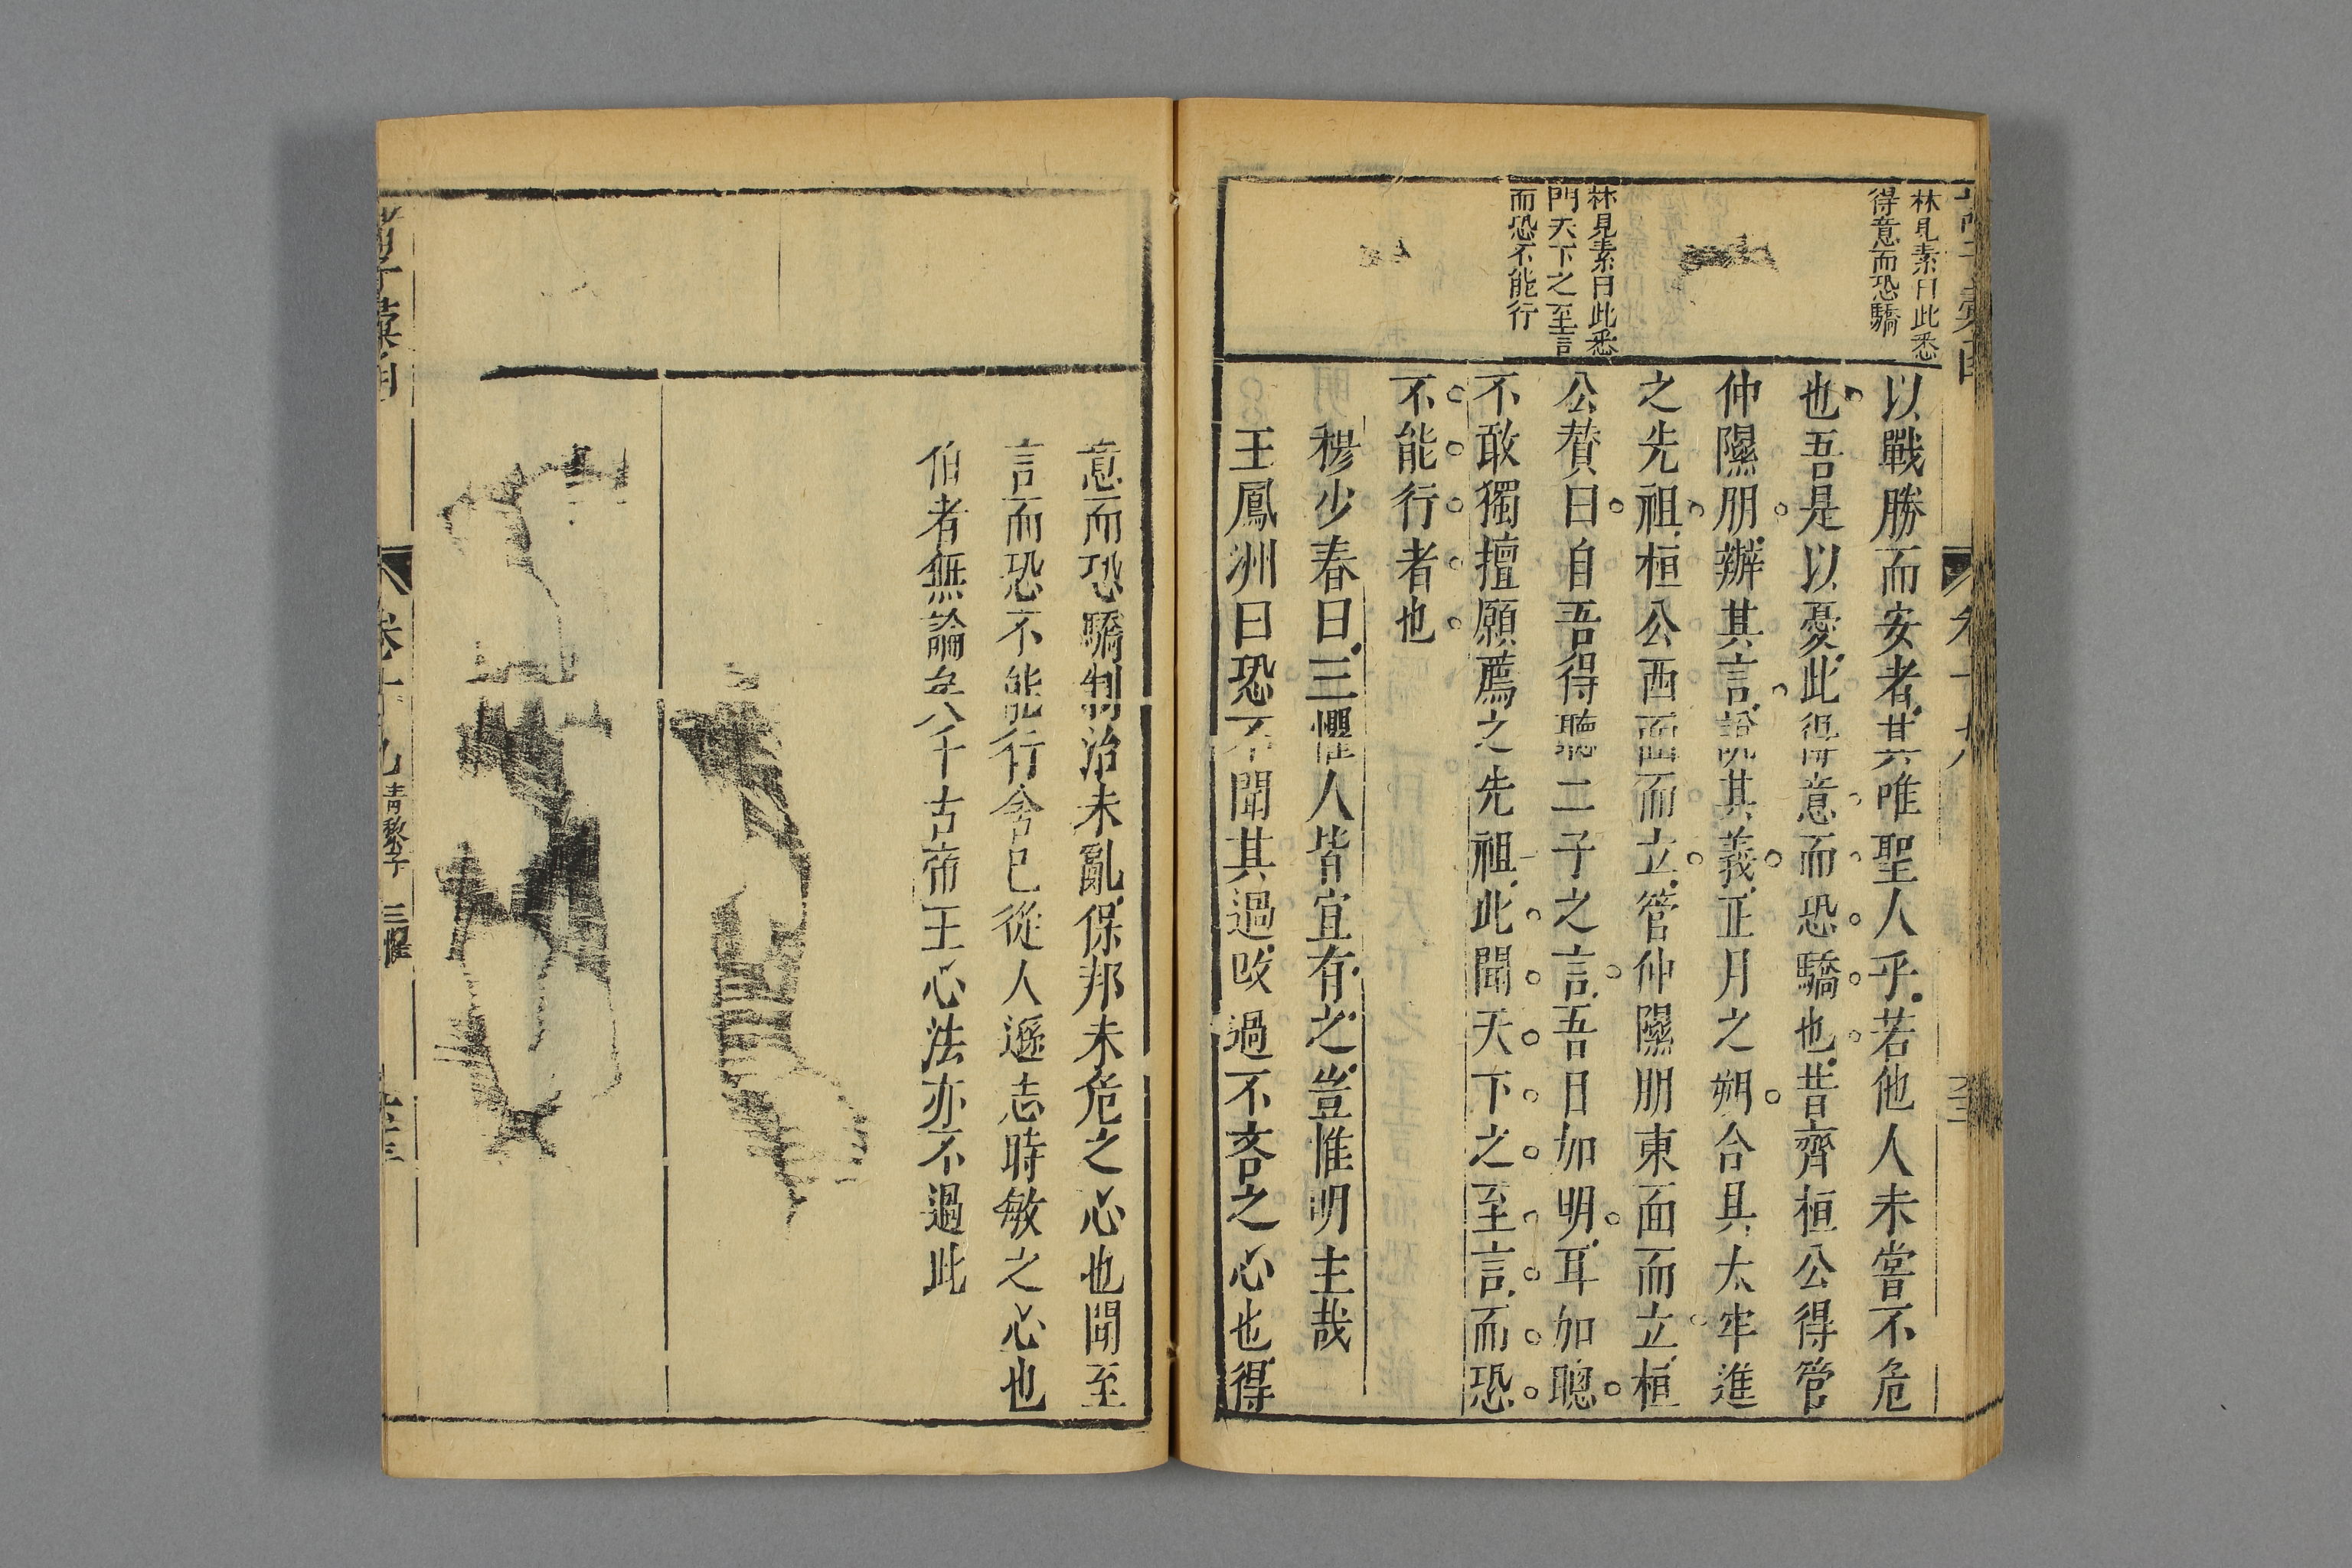 林見素曰此悉
得意而恐驕
林見素曰此悉
門天下之至言
而恐不能行
以戰勝而安者其唯聖人乎若他人未嘗不危
也吾是以憂此得意而恐驕也昔齊桓公得管
仲隰朋辦其言說其義正月之朔合具太牢進
之先祖桓公西面而立管仲隰朋東面而立桓
公賛曰自吾得聽二子之言吾日加明耳加聰
不敢獨擅願薦之先祖此聞天下之至言而恐
不能行者也
穆少春曰三懼人皆宜有之豈惟明主哉
王鳳洲曰恐不聞其過改過不吝之心也得
意而恐驕制治未亂保邦未危之心也聞至
言而恐不能行舍已從人遜志時敏之心也
伯者無論矣八千古帝王心法亦不過此
諸子彙函
卷十九 青藜子 三懼